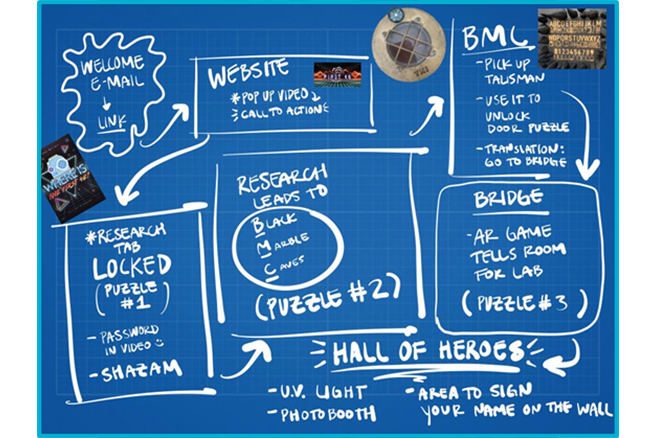 WELCOME
E-MAIL
LINK
WEBSITE
*POP UP VIDEO
CALL TO ACTION
WHERE IS
*RESEARCH
TAB
LOCKED
(PUZZLE
#1)
- PASSWORD
IN VIDEO
- SHAZAM
RESEARCH
LEADS TO
BLACK
MARBLE
CAVES
(PUZZLE #2)
BMC
- PICK UP
TALISMAN
- USE IT TO
UNLOCK
DOOR PUZZLE
- TRANSLATION:
GO TO BRIDGE
ABCDEFGHIJKLM
NOPQRSTUVWXYZ
BRIDGE
- AR GAME
TELLS ROOM
FOR LAB
(PUZZLE #3)
HALL OF HEROES
- U.V. LIGHT
- PHOTOBOOTH
- AREA TO SIGN
YOUR NAME ON THE WALL